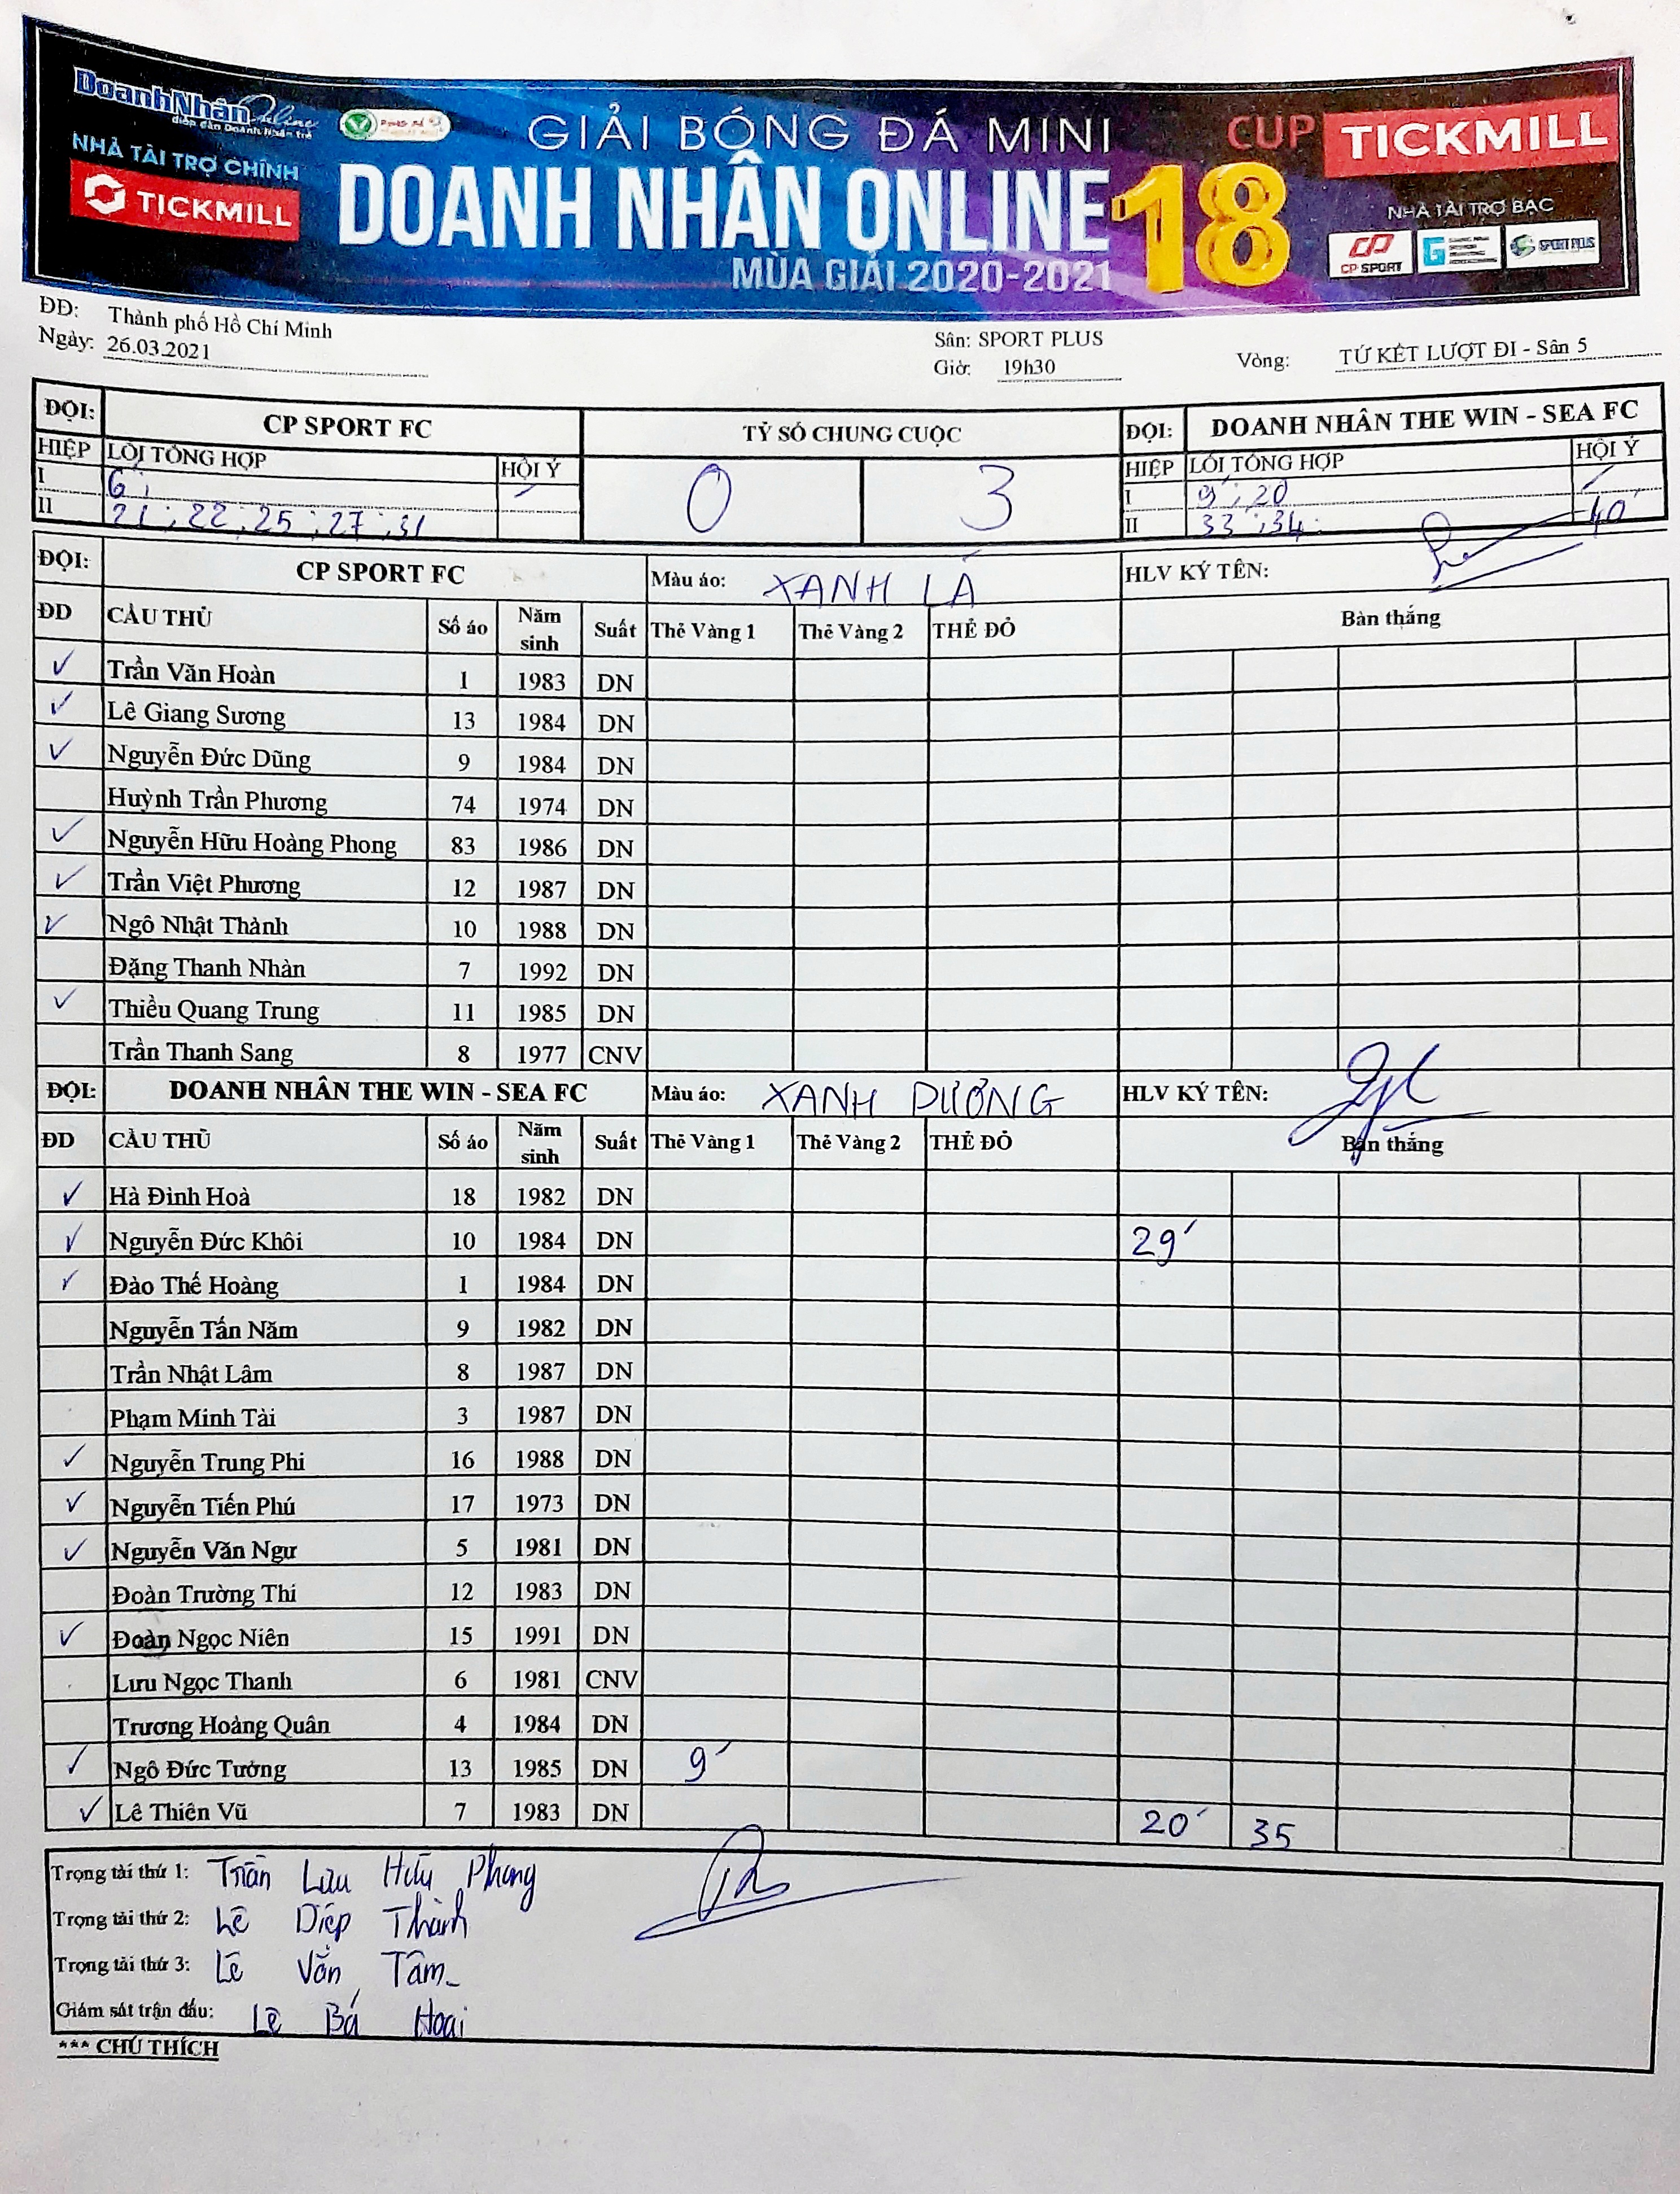 DoanhNhân Online
diễn đàn Doanh Nhân trẻ
NHÀ TÀI TRỢ CHÍNH
TICKMILL
GIẢI BÓNG ĐÁ MINI
DOANH NHÂN ONLINE 18
MÙA GIẢI 2020-2021
CUP TICKMILL
NHÀ TÀI TRỢ BẠC
CP SPORT
SPORT PLUS
ĐĐ: Thành phố Hồ Chí Minh
Sân: SPORT PLUS
Ngày: 26.03.2021
Giờ: 19h30
Vòng: TỨ KẾT LƯỢT ĐI - Sân 5
ĐỘI: CP SPORT FC TỶ SỐ CHUNG CUỘC ĐỘI: DOANH NHÂN THE WIN - SEA FC
HIỆP LỖI TỔNG HỢP HỘI Ý 0 3 HIỆP LỖI TỔNG HỢP HỘI Ý
I 6' I 9' ; 20
II 21 ; 22 ; 25 ; 27 ; 31 II 33 ; 34 40'
ĐỘI: CP SPORT FC Màu áo: XANH LÁ HLV KÝ TÊN:
ĐD CẦU THỦ Số áo Năm sinh Suất Thẻ Vàng 1 Thẻ Vàng 2 THẺ ĐỎ Bàn thắng
✓ Trần Văn Hoàn 1 1983 DN
✓ Lê Giang Sương 13 1984 DN
✓ Nguyễn Đức Dũng 9 1984 DN
Huỳnh Trần Phương 74 1974 DN
✓ Nguyễn Hữu Hoàng Phong 83 1986 DN
✓ Trần Việt Phương 12 1987 DN
✓ Ngô Nhật Thành 10 1988 DN
Đặng Thanh Nhàn 7 1992 DN
✓ Thiều Quang Trung 11 1985 DN
Trần Thanh Sang 8 1977 CNV
ĐỘI: DOANH NHÂN THE WIN - SEA FC Màu áo: XANH DƯƠNG HLV KÝ TÊN:
ĐD CẦU THỦ Số áo Năm sinh Suất Thẻ Vàng 1 Thẻ Vàng 2 THẺ ĐỎ Bàn thắng
✓ Hà Đình Hoà 18 1982 DN
✓ Nguyễn Đức Khôi 10 1984 DN 29'
✓ Đào Thế Hoàng 1 1984 DN
Nguyễn Tấn Năm 9 1982 DN
Trần Nhật Lâm 8 1987 DN
Phạm Minh Tài 3 1987 DN
✓ Nguyễn Trung Phi 16 1988 DN
✓ Nguyễn Tiến Phú 17 1973 DN
✓ Nguyễn Văn Ngư 5 1981 DN
Đoàn Trường Thi 12 1983 DN
✓ Đoàn Ngọc Niên 15 1991 DN
Lưu Ngọc Thanh 6 1981 CNV
Trương Hoàng Quân 4 1984 DN
✓ Ngô Đức Tưởng 13 1985 DN 9'
✓ Lê Thiên Vũ 7 1983 DN 20' 35
Trọng tài thứ 1: Trần Lưu Hữu Phong
Trọng tài thứ 2: Lê Diệp Thành
Trọng tài thứ 3: Lê Văn Tâm
Giám sát trận đấu: Lê Bá Hoài
*** CHÚ THÍCH